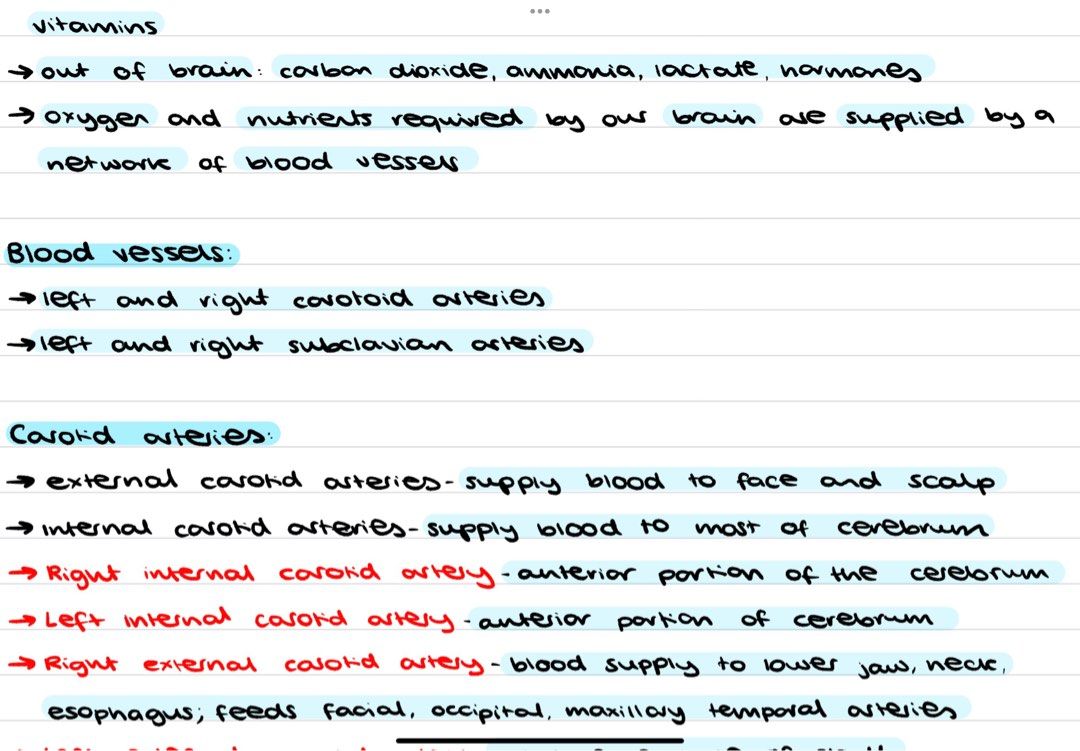 vitamins
→ out of brain: carbon dioxide, ammonia, lactate, hormones
→ oxygen and nutrients required by our brain are supplied by a
network of blood vessels
Blood vessels:
→ left and right carotoid arteries
→ left and right subclavian arteries
Carotid arteries:
→ external carotid arteries - supply blood to face and scalp
→ internal carotid arteries - supply blood to most of cerebrum
→ Right internal carotid artery - anterior portion of the cerebrum
→ Left internal carotid artery - anterior portion of cerebrum
→ Right external carotid artery - blood supply to lower jaw, neck,
esophagus; feeds facial, occipital, maxillary temporal arteries